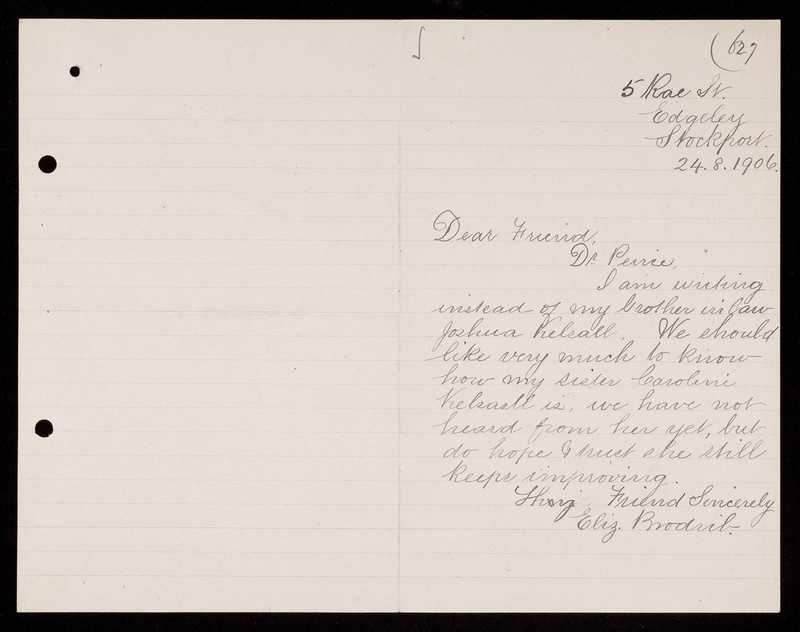 627
5 Rae St.
Edgeley
Stockport.
24.8.1906.
Dear Friend,
Dr. Peirce,
I am writing
instead of my brother in law
Joshua Kelsall. We should
like very much to know
how my sister Caroline
Kelsall is, we have not
heard from her yet, but
do hope & trust she still
keeps improving.
Friend Sincerely
Eliz. Brodrib.